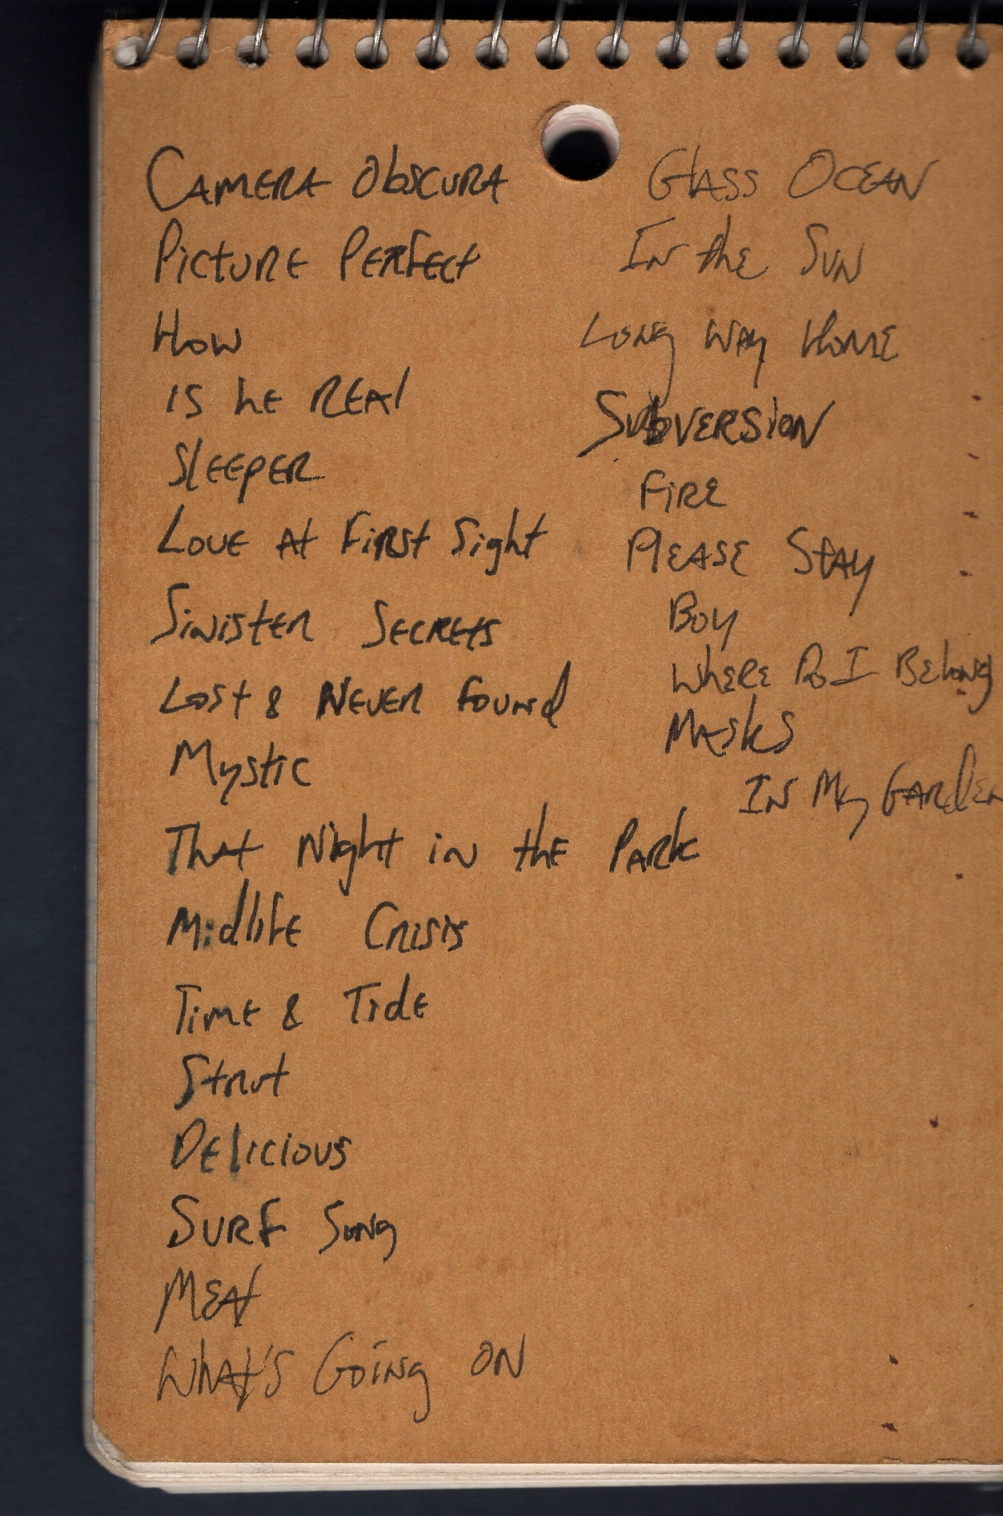 Camera Obscura
Picture Perfect
How
Is he Real
Sleeper
Love At First Sight
Sinister Secrets
Lost & Never Found
Mystic
That Night in the Park
Midlife Crisis
Time & Tide
Strut
Delicious
Surf Song
Meat
What's Going On
Glass Ocean
In the Sun
Long Way Home
Subversion
Fire
Please Stay
Boy
Where Do I Belong
Masks
In My Garden